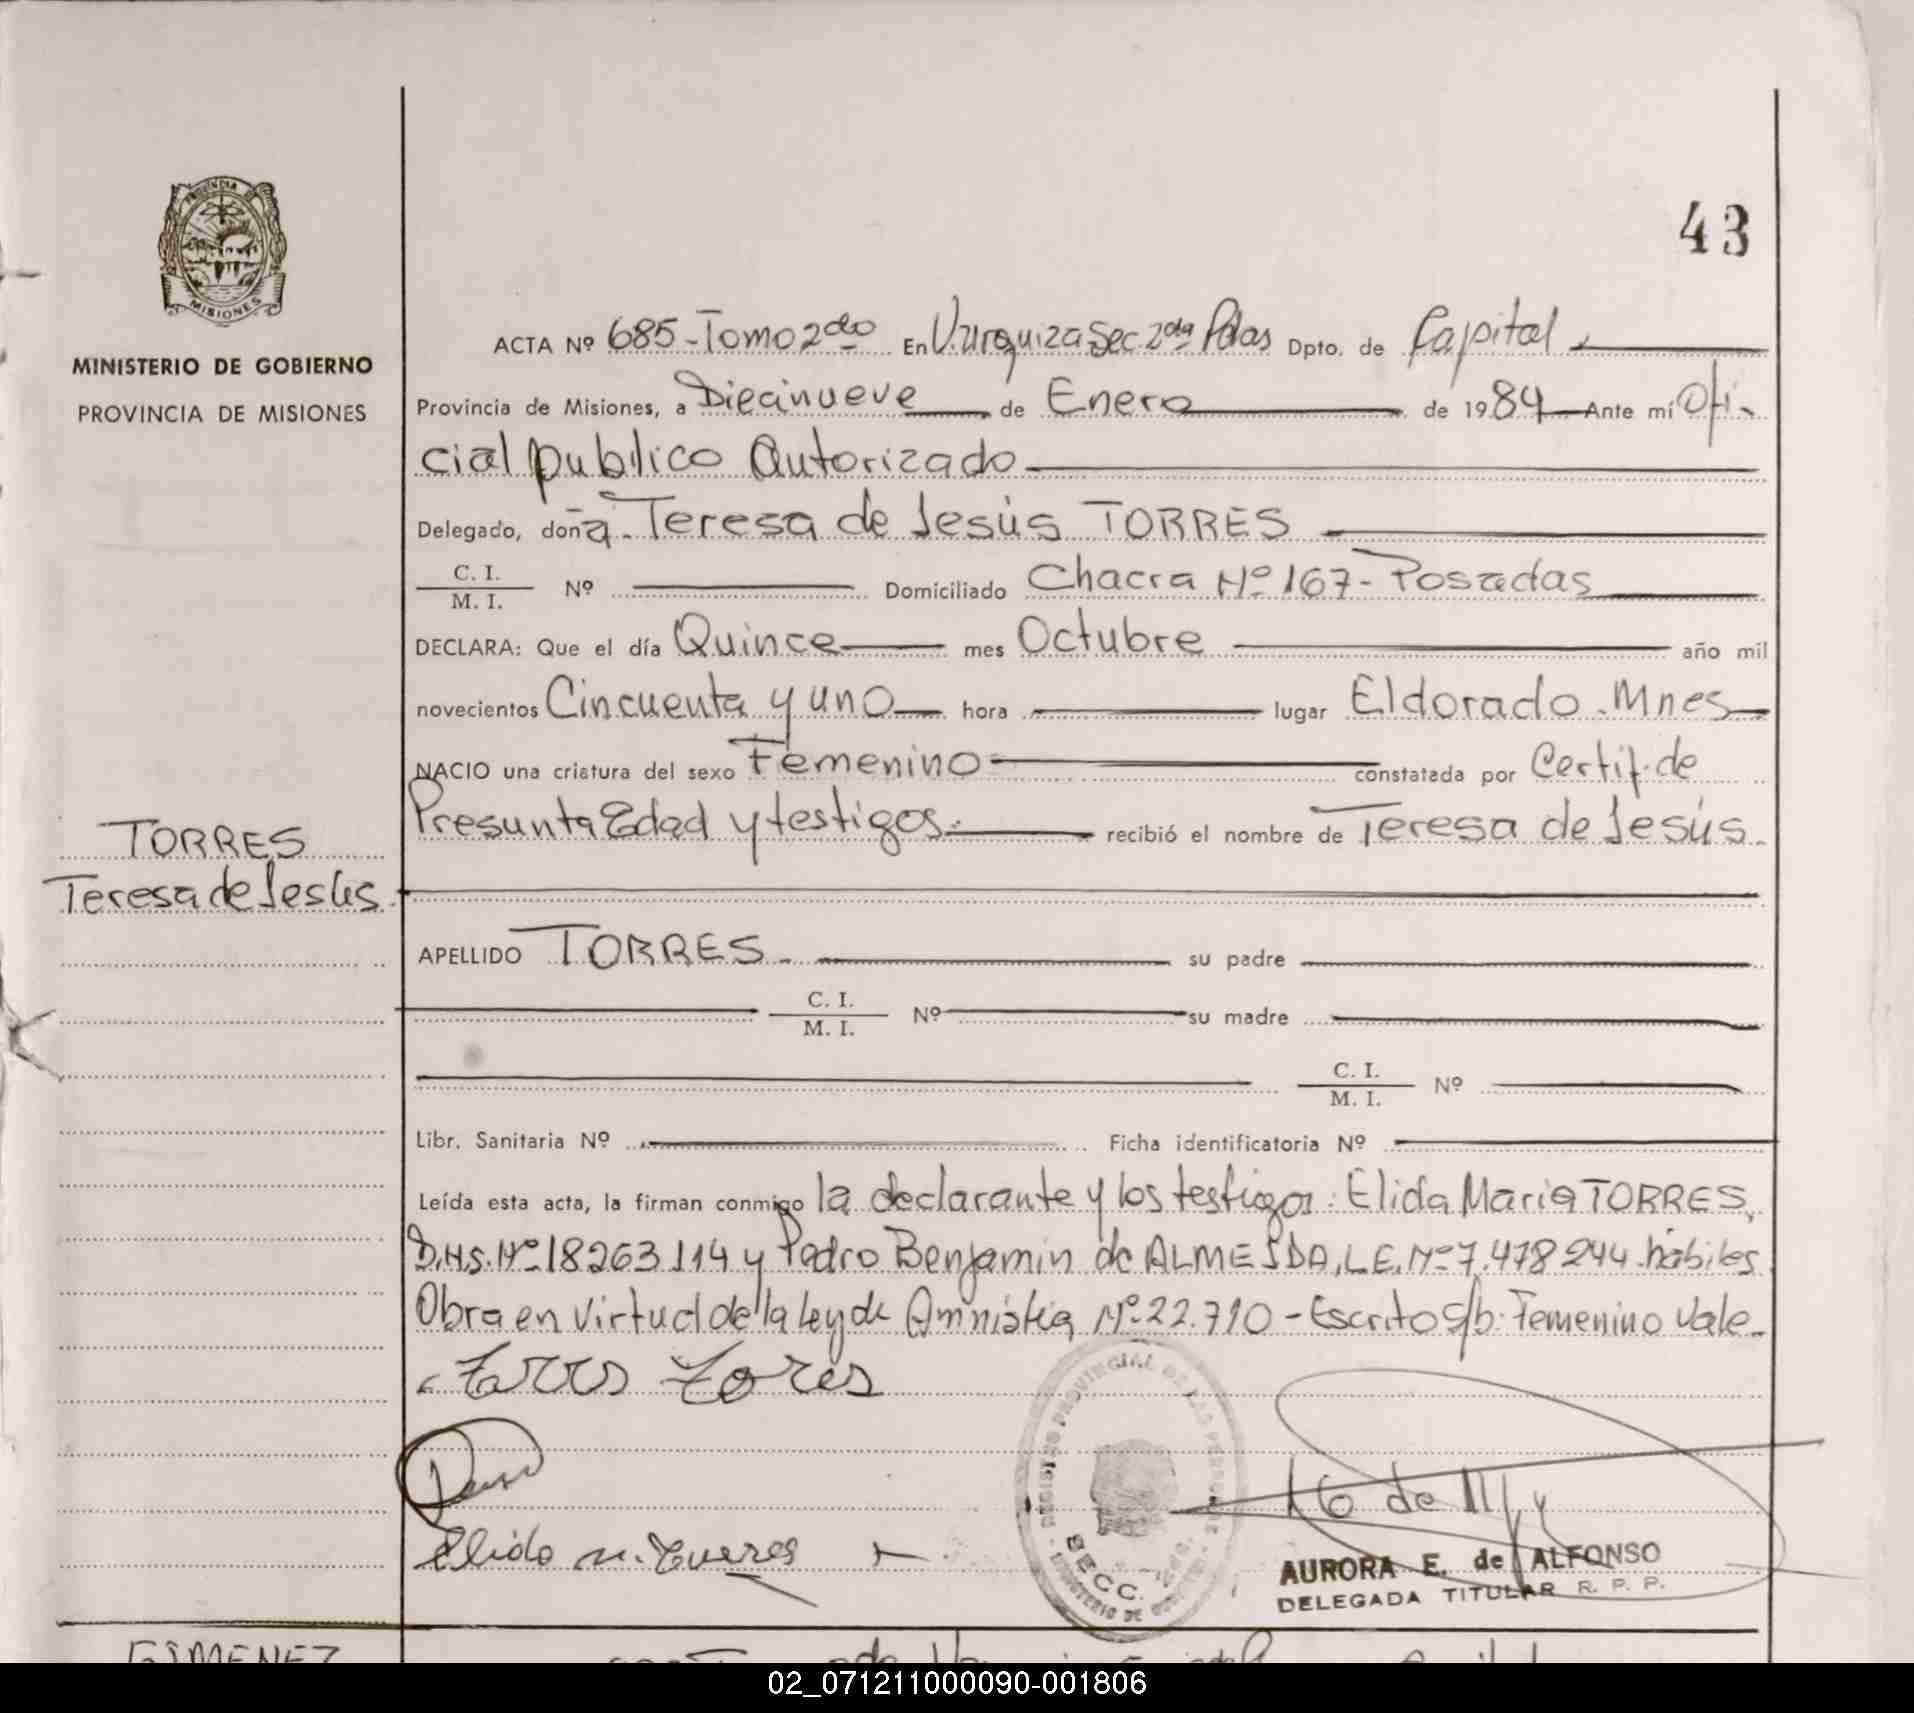 43
PROVINCIA DE
MISIONES
MINISTERIO DE GOBIERNO
PROVINCIA DE MISIONES
ACTA Nº 685-Tomo 2do En V. Urquiza Sec 2da Pdas Dpto. de Capital
Provincia de Misiones, a Diecinueve de Enero de 1984 Ante mí Ofi-
cial publico Autorizado
Delegado, doña. Teresa de Jesús TORRES
C. I.
M. I. Nº Domiciliado Chacra Nº 167-Posadas
DECLARA: Que el día Quince mes Octubre año mil
novecientos Cincuenta y uno hora lugar Eldorado. Mnes
NACIO una criatura del sexo Femenino constatada por Certif. de
Presunta Edad y testigos. recibió el nombre de Teresa de Jesús.
TORRES
Teresa de Jesús.
APELLIDO TORRES. su padre
C. I.
M. I. Nº su madre
C. I.
M. I. Nº
Libr. Sanitaria Nº Ficha identificatoria Nº
Leída esta acta, la firman conmigo la declarante y los testigos: Elida Maria TORRES,
D.N.S. Nº 18263114 y Pedro Benjamin de ALMEIDA, L.E. Nº 7.478244 hábiles
Obra en virtud de la ley de Amnistia Nº 22.710 - Escrito s/b: Femenino Vale-
Torres
Elida M. Torres
REGISTRO PROVINCIAL DE LAS PERSONAS
SECC.
MINISTERIO DE GOBIERNO
AURORA E. de ALFONSO
DELEGADA TITULAR R. P. P.
GIMENEZ
02_071211000090-001806